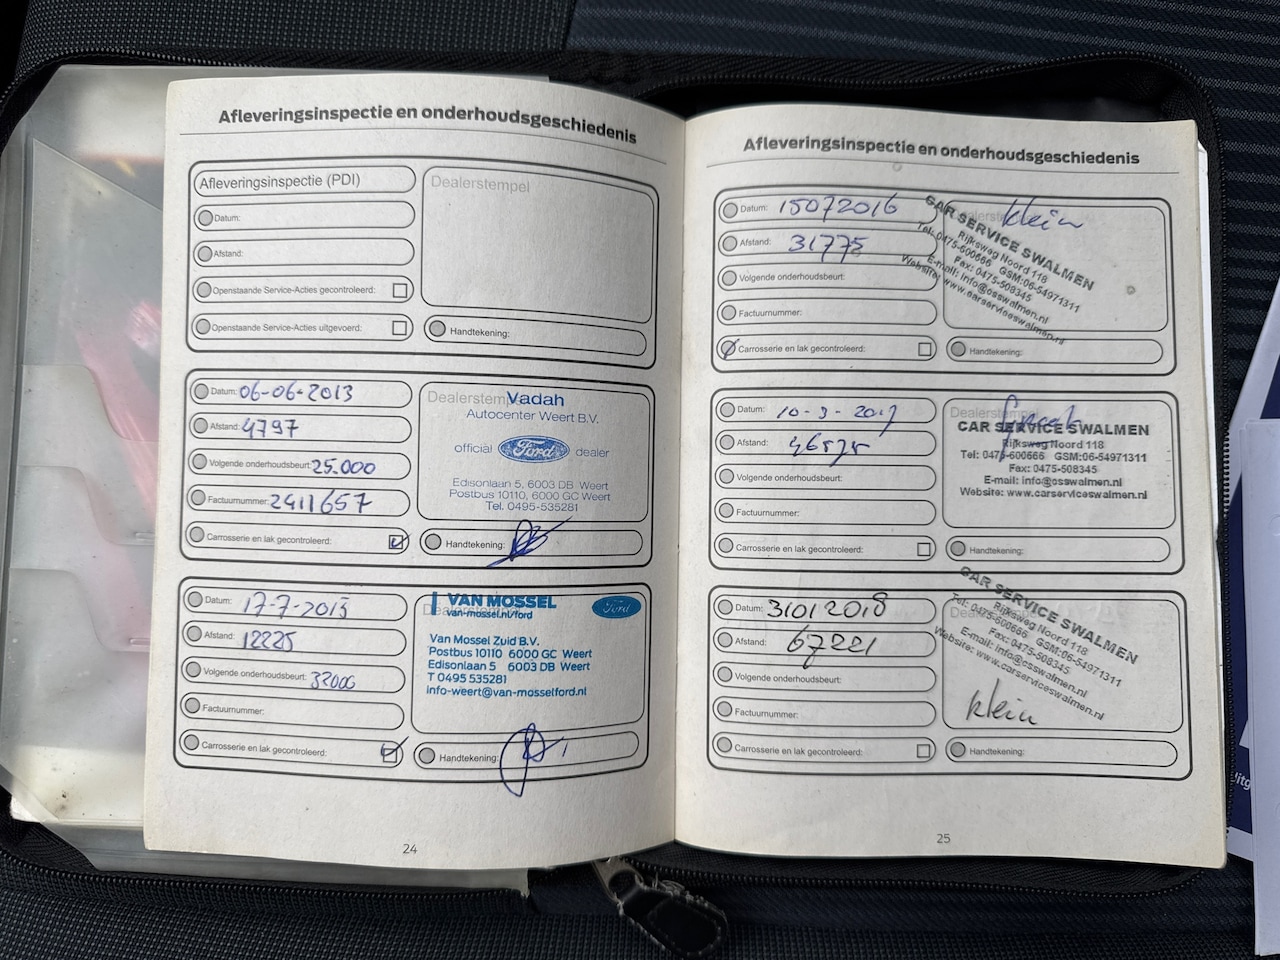 Afleveringsinspectie en onderhoudsgeschiedenis
Afleveringsinspectie (PDI)
Dealerstempel
Datum:
Afstand:
Openstaande Service-Acties gecontroleerd:
Openstaande Service-Acties uitgevoerd:
Handtekening:
Datum: 06-06-2013
Afstand: 4797
Volgende onderhoudsbeurt: 25.000
Factuurnummer: 2411657
Carrosserie en lak gecontroleerd:
Vadah
Autocenter Weert B.V.
official Ford dealer
Edisonlaan 5, 6003 DB Weert
Postbus 10110, 6000 GC Weert
Tel. 0495-535281
Handtekening:
Datum: 17-7-2015
Afstand: 12225
Volgende onderhoudsbeurt: 32000
Factuurnummer:
Carrosserie en lak gecontroleerd:
VAN MOSSEL Ford
van-mossel.nl/ford
Van Mossel Zuid B.V.
Postbus 10110 6000 GC Weert
Edisonlaan 5 6003 DB Weert
T 0495 535281
info-weert@van-mosselford.nl
Handtekening:
24
Afleveringsinspectie en onderhoudsgeschiedenis
Datum: 15072016
Afstand: 31775
Volgende onderhoudsbeurt:
Factuurnummer:
Carrosserie en lak gecontroleerd:
klein
CAR SERVICE SWALMEN
Rijksweg Noord 118
Tel: 0475-600666 GSM:06-54971311
Fax: 0475-508345
E-mail: info@csswalmen.nl
Website: www.carserviceswalmen.nl
Handtekening:
Datum:
Afstand:
Volgende onderhoudsbeurt:
Factuurnummer:
Carrosserie en lak gecontroleerd:
CAR SERVICE SWALMEN
Rijksweg Noord 118
Tel: 0475-600666 GSM:06-54971311
Fax: 0475-508345
E-mail: info@csswalmen.nl
Website: www.carserviceswalmen.nl
Handtekening:
Datum: 31012018
Afstand: 67221
Volgende onderhoudsbeurt:
Factuurnummer:
Carrosserie en lak gecontroleerd:
CAR SERVICE SWALMEN
Rijksweg Noord 118
Tel: 0475-600666 GSM:06-54971311
Fax: 0475-508345
E-mail: info@csswalmen.nl
Website: www.carserviceswalmen.nl
klein
Handtekening:
25